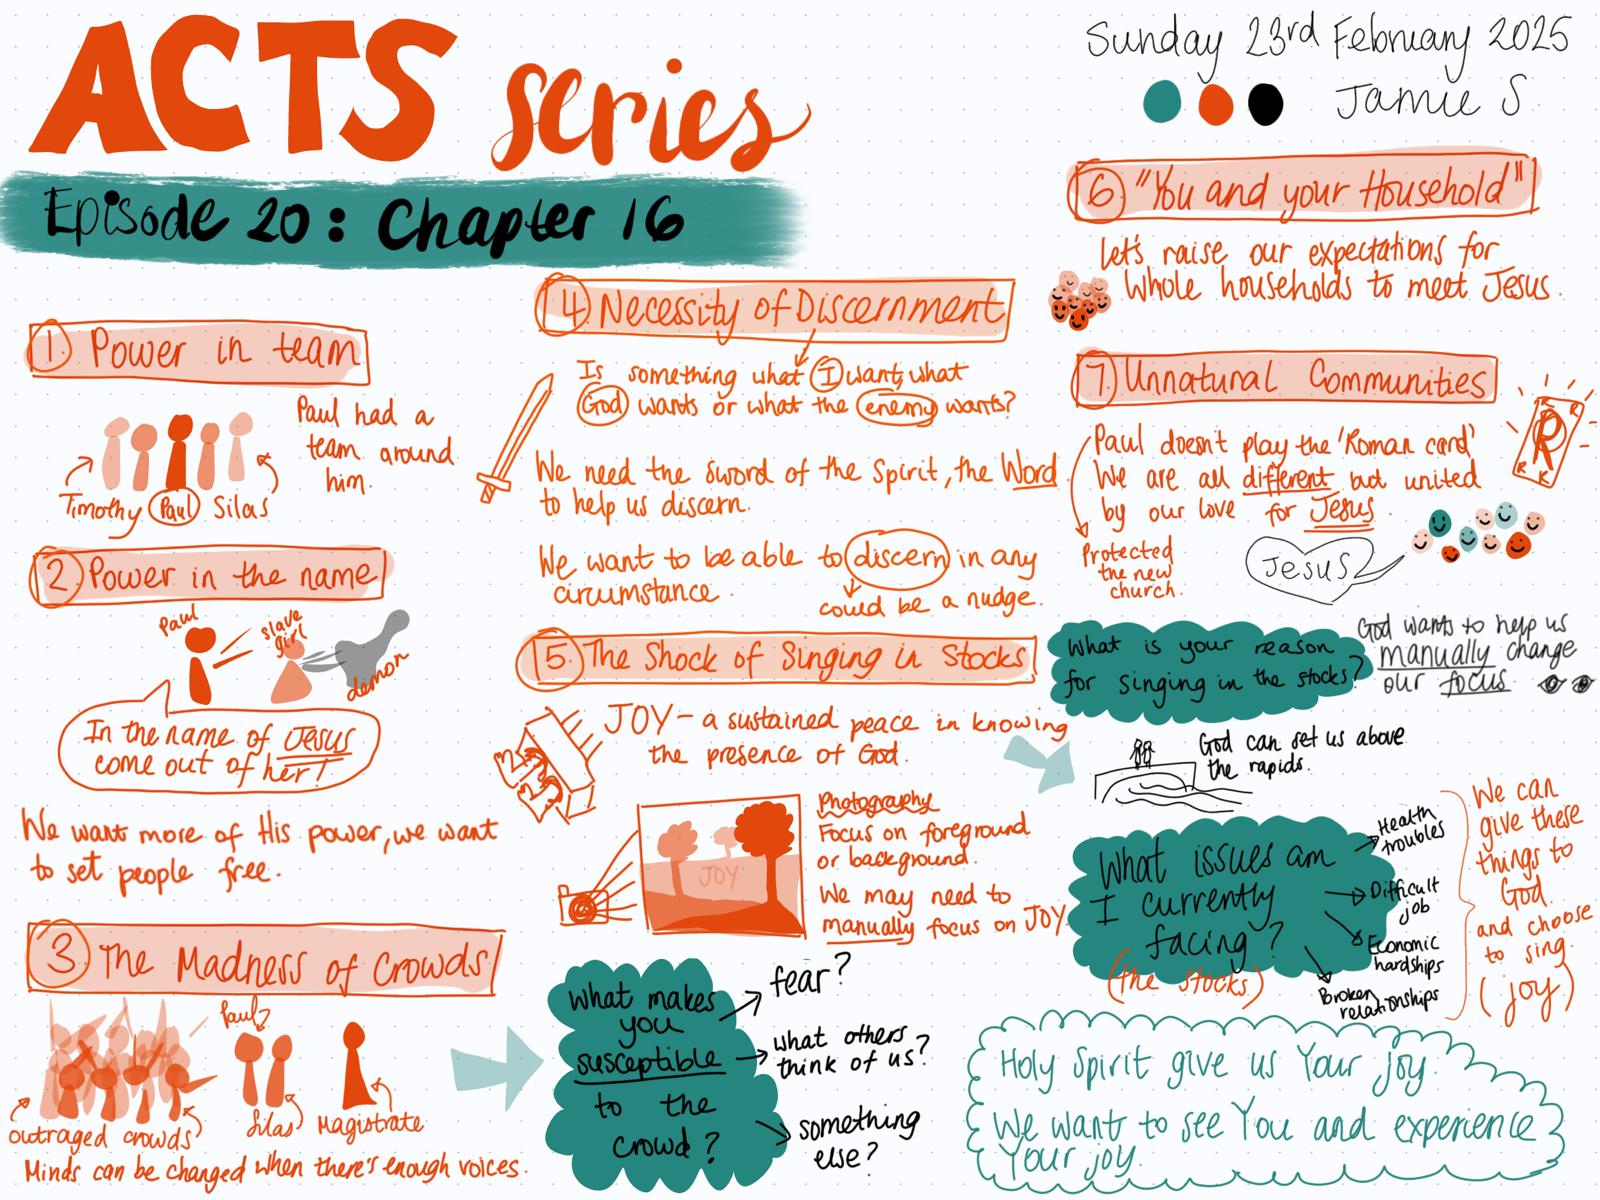 ACTS series
Episode 20: Chapter 16
Sunday 23rd February 2025
Jamie S
1 Power in team
Paul had a
team around
him.
Timothy Paul Silas
2 Power in the name
Paul
slave
girl
demon
In the name of Jesus
come out of her!
We want more of His power, we want
to set people free.
3 The Madness of Crowds
Paul?
outraged crowds
Silas
Magistrate
Minds can be changed when there's enough voices.
What makes
you
susceptible
to the
crowd?
fear?
what others
think of us?
something
else?
4 Necessity of Discernment
Is something what I want, what
God wants or what the enemy wants?
We need the sword of the Spirit, the Word
to help us discern.
We want to be able to discern in any
circumstance.
could be a nudge.
5 The Shock of Singing in Stocks
JOY - a sustained peace in knowing
the presence of God.
JOY
Photography
Focus on foreground
or background.
We may need to
manually focus on JOY.
6 "You and your Household"
Let's raise our expectations for
whole households to meet Jesus.
7 Unnatural Communities
Paul doesn't play the 'Roman card'
We are all different but united
by our love for Jesus.
Protected
the new
church.
R
R
R
K
K
Jesus
What is your reason
for singing in the stocks?
God wants to help us
manually change
our focus
God can set us above
the rapids.
What issues am
I currently
facing?
(the stocks)
Health
troubles
Difficult
job
Economic
hardships
Broken
relationships
We can
give these
things to
God
and choose
to sing.
(joy)
Holy Spirit give us Your joy.
We want to see You and experience
Your joy.